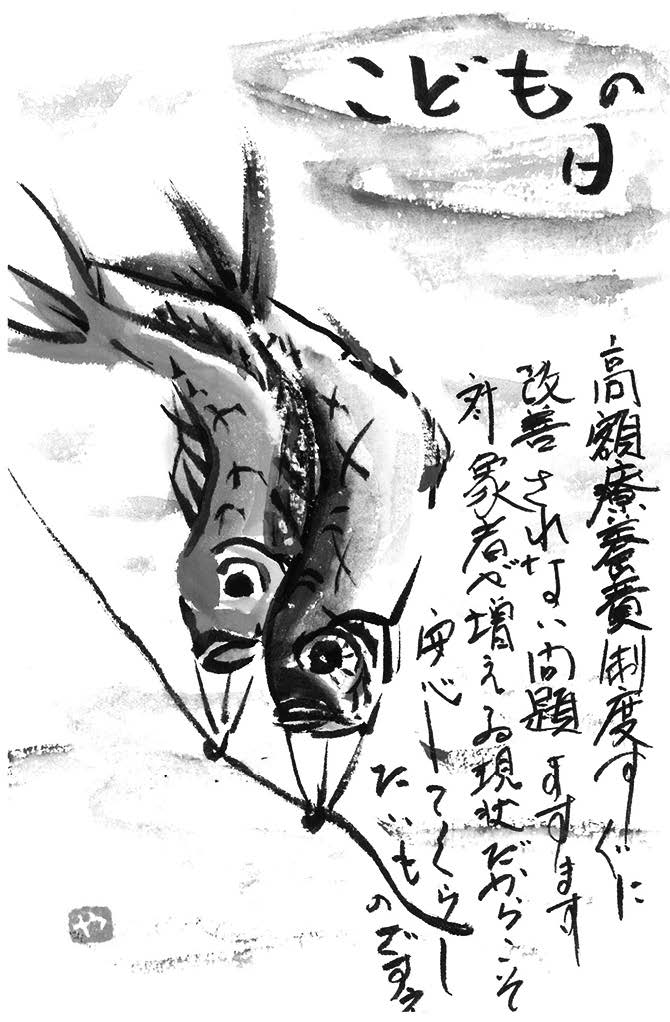 こどもの
日
高額療養費制度すぐに
改善されない問題 ますます
対象者が増える現状だからこそ
安心してくらし
たいも
のですネ
や